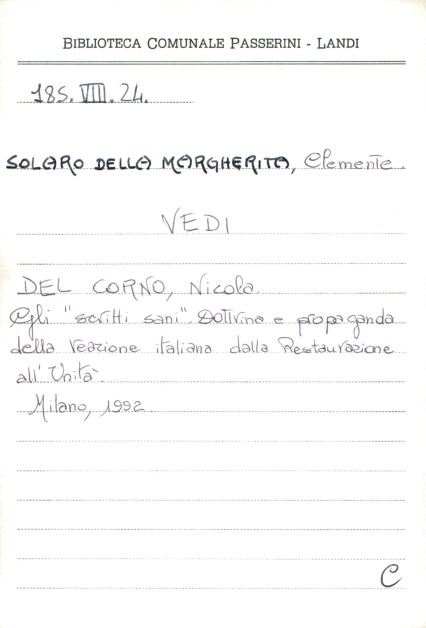 BIBLIOTECA COMUNALE PASSERINI - LANDI
185.VIII.24.
SOLARO DELLA MARGHERITA, Clemente.
VEDI
DEL CORNO, Nicola
Gli "scritti sani". Dottrina e propaganda
della reazione italiana dalla Restaurazione
all'Unità
Milano, 1992
C